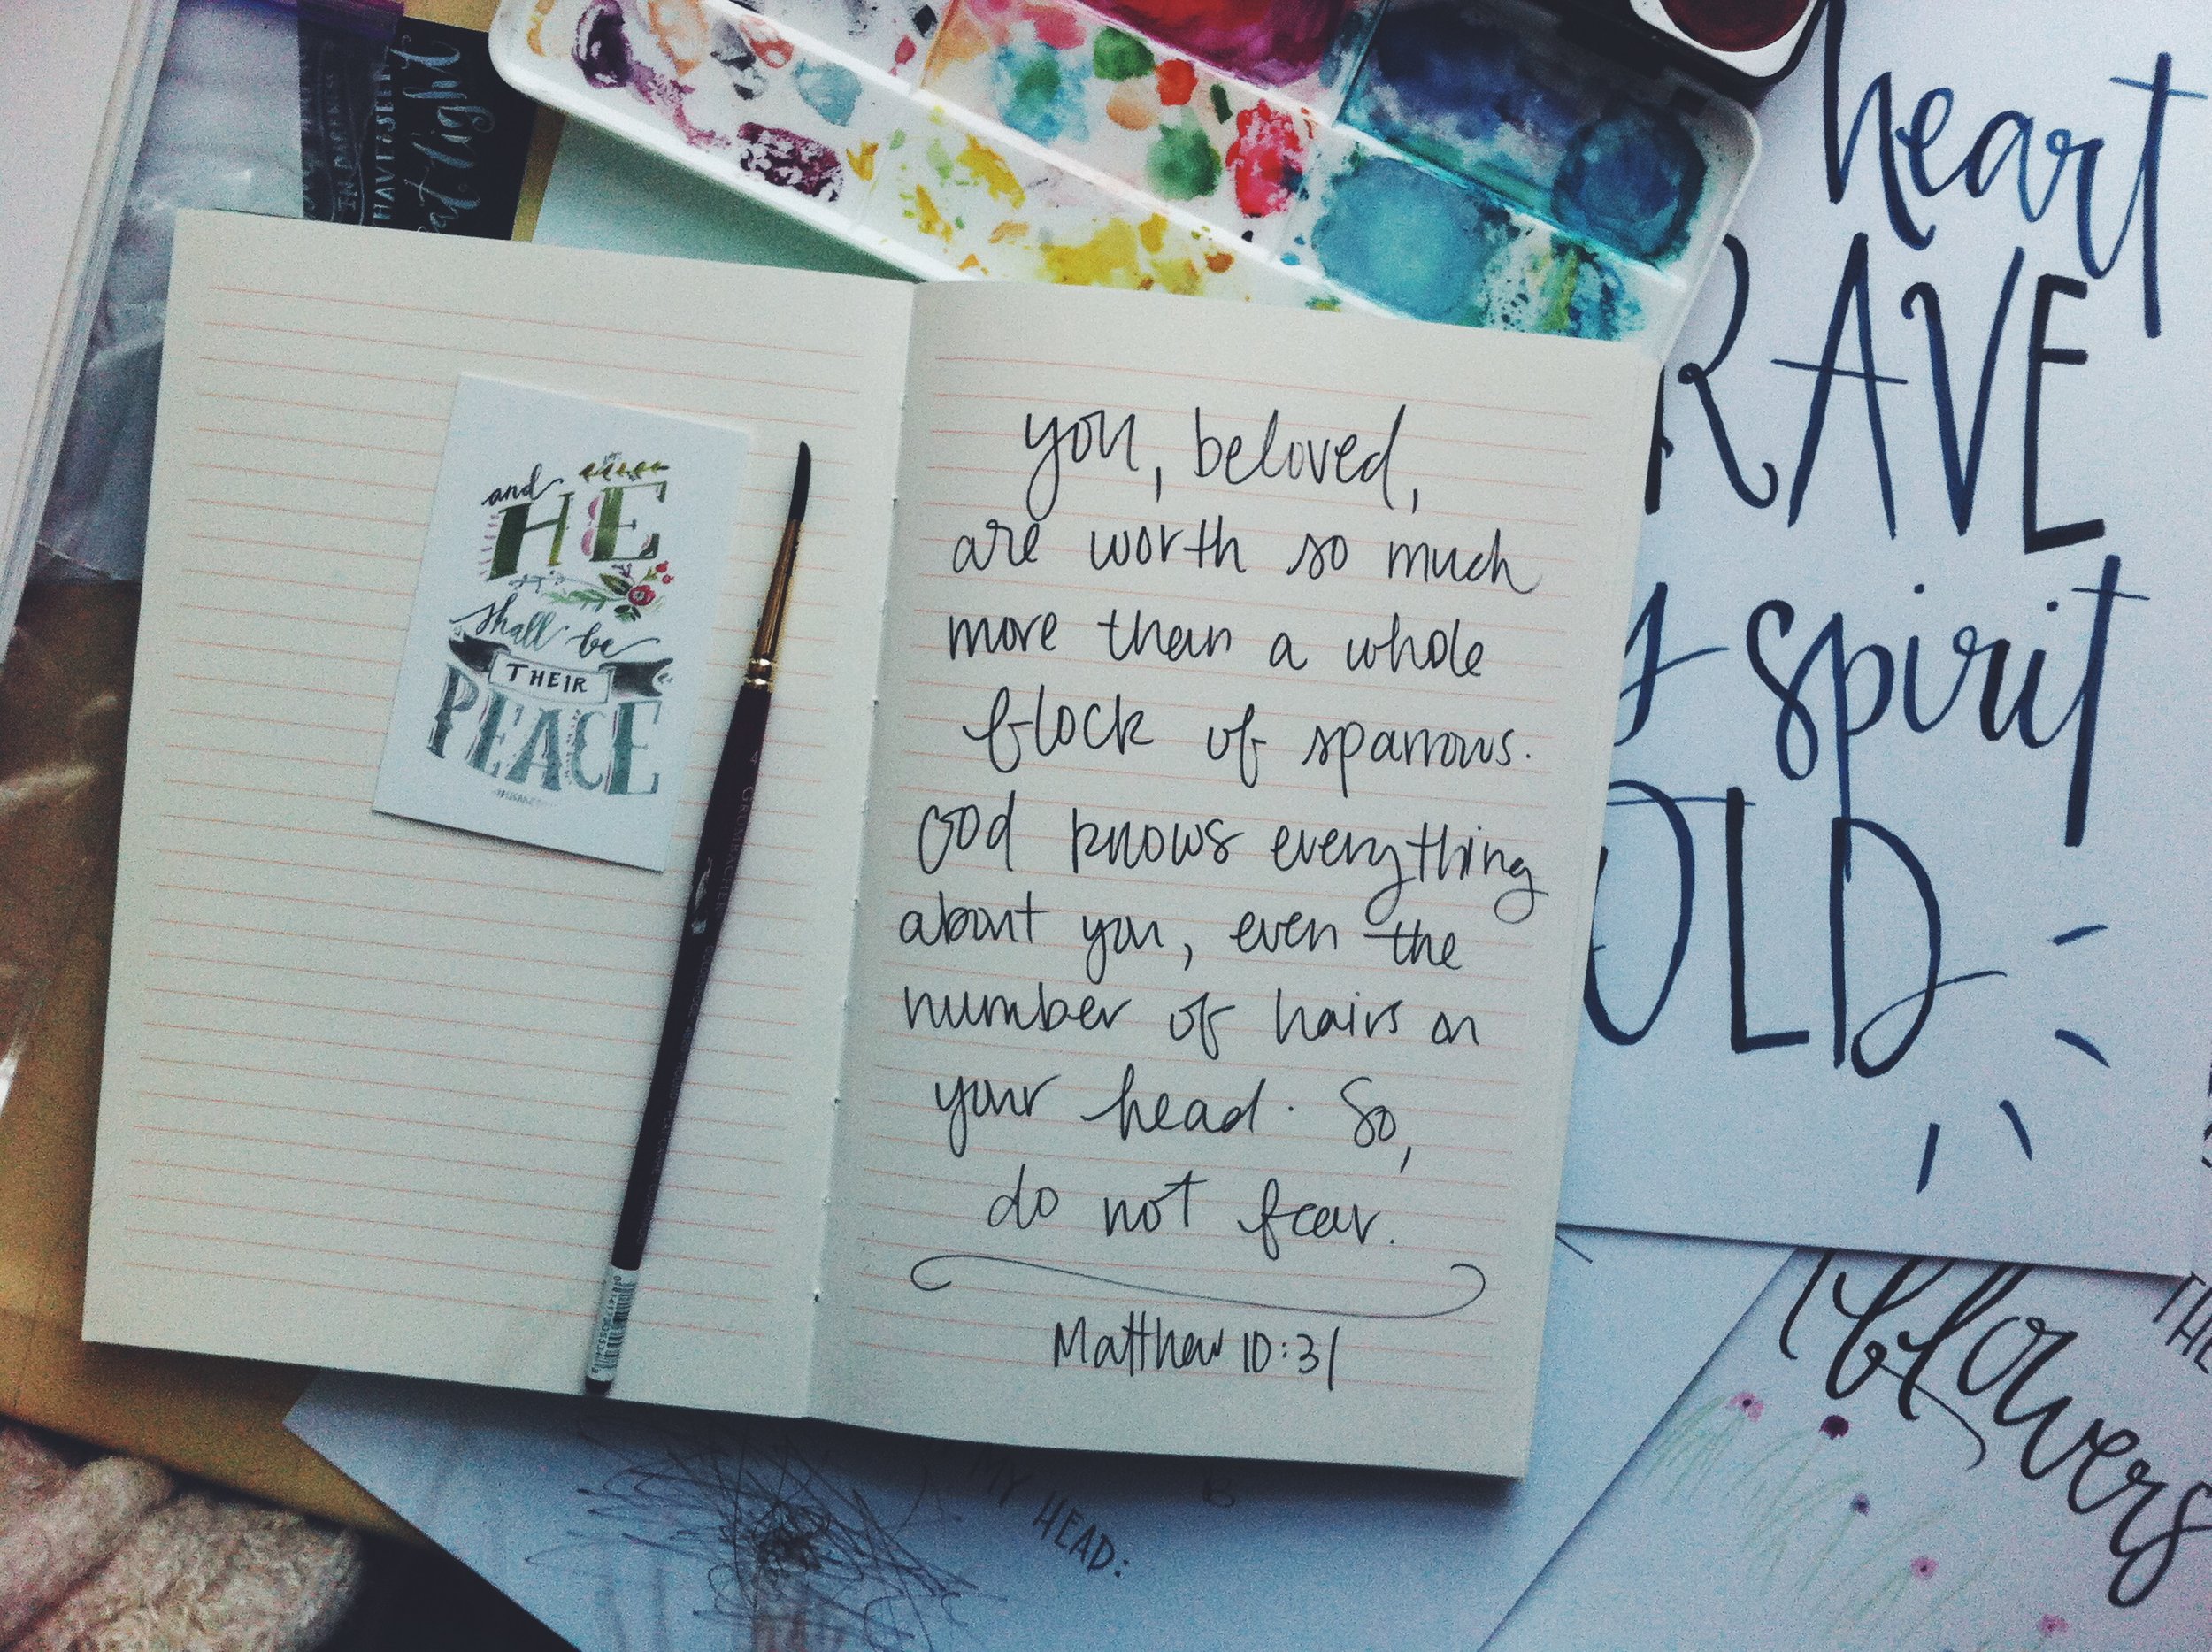 IN DARKNESS
HAVE SEEN
light
and
HE
shall be
THEIR
PEACE
you, beloved,
are worth so much
more than a whole
flock of sparrows.
God knows everything
about you, even the
number of hairs on
your head. So,
do not fear.
Matthew 10:31
heart
RAVE
spirit
OLD
flowers
THE
MY HEAD: